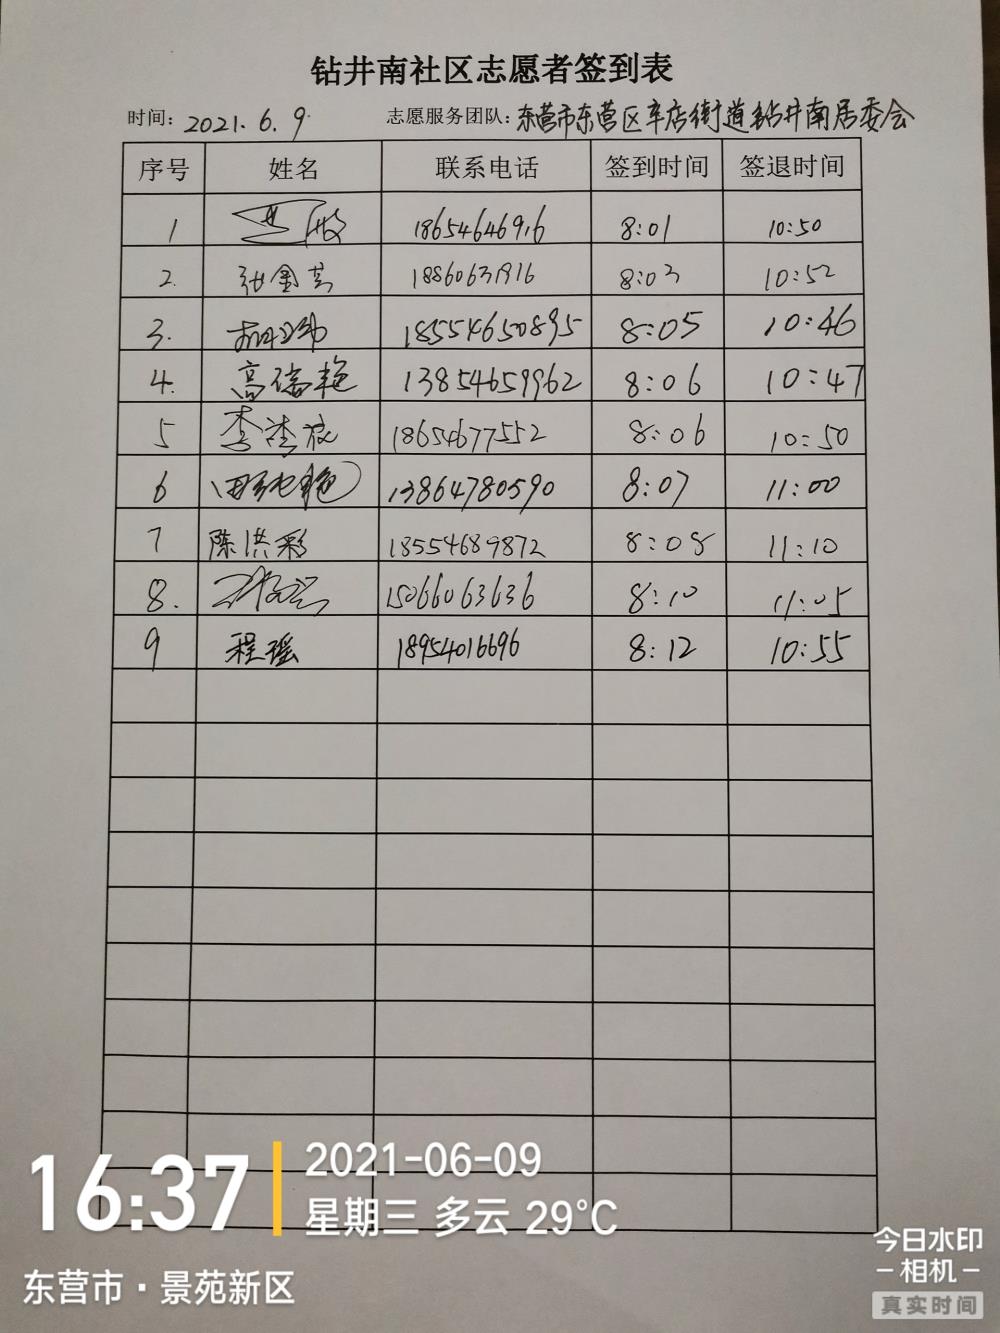 钻井南社区志愿者签到表
时间：2021.6.9 志愿服务团队：东营市东营区辛店街道钻井南居委会
序号 姓名 联系电话 签到时间 签退时间
1 18654646916 8:01 10:50
2. 张金芸 18860631916 8:03 10:52
3. 18554650895 8:05 10:46
4. 高瑞艳 13854659962 8:06 10:47
5 李 18654677552 8:06 10:50
6 田纯艳 13864780590 8:07 11:00
7 陈洪彩 18554689872 8:08 11:10
8. 15066063636 8:10 11:05
9 程瑶 18954016696 8:12 10:55
16:37
2021-06-09
星期三 多云 29°C
东营市·景苑新区
今日水印
-相机-
真实时间